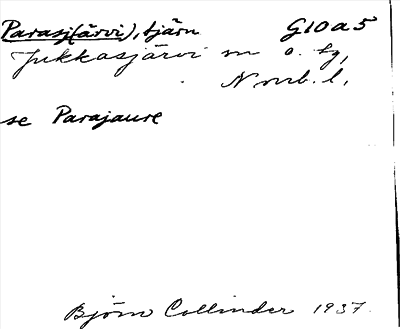 Parasj(ärvi), tjärn G10a5
Jukkasjärvi sn o. tg,
Nonb. l.
se Parajaure
Björn Collinder 1937.